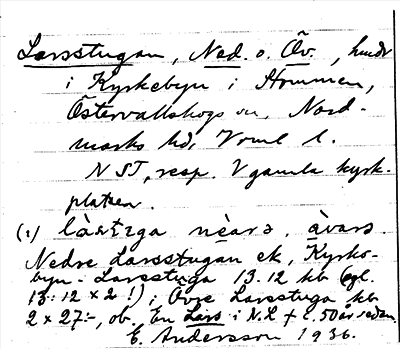 Larsstugan, Ned. o. Öv., hmdr
i Kyrkebyn i Strommen,
Östervallskogs sn, Nord-
marks hd, Vrml l.
N ST, resp. V gamla kyrk-
platsen.
(1) nèarə, àvarə
Nedre Larsstugan ek, Kyrko-
byn: Larsstuga 13.12 kb (egl.
13:12 x 2 !) ; Övre Larsstuga kb
2 x 27:-, ob. En Lars i N.L † c. 50 år sedan.
E. Andersson 1936.